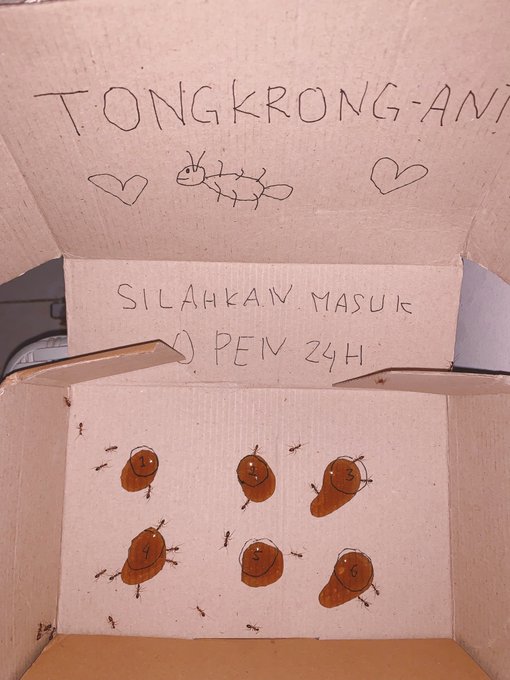 TONGKRONG-ANT
SILAHKAN MASUK
OPEN 24H
1 2 3
4 5 6